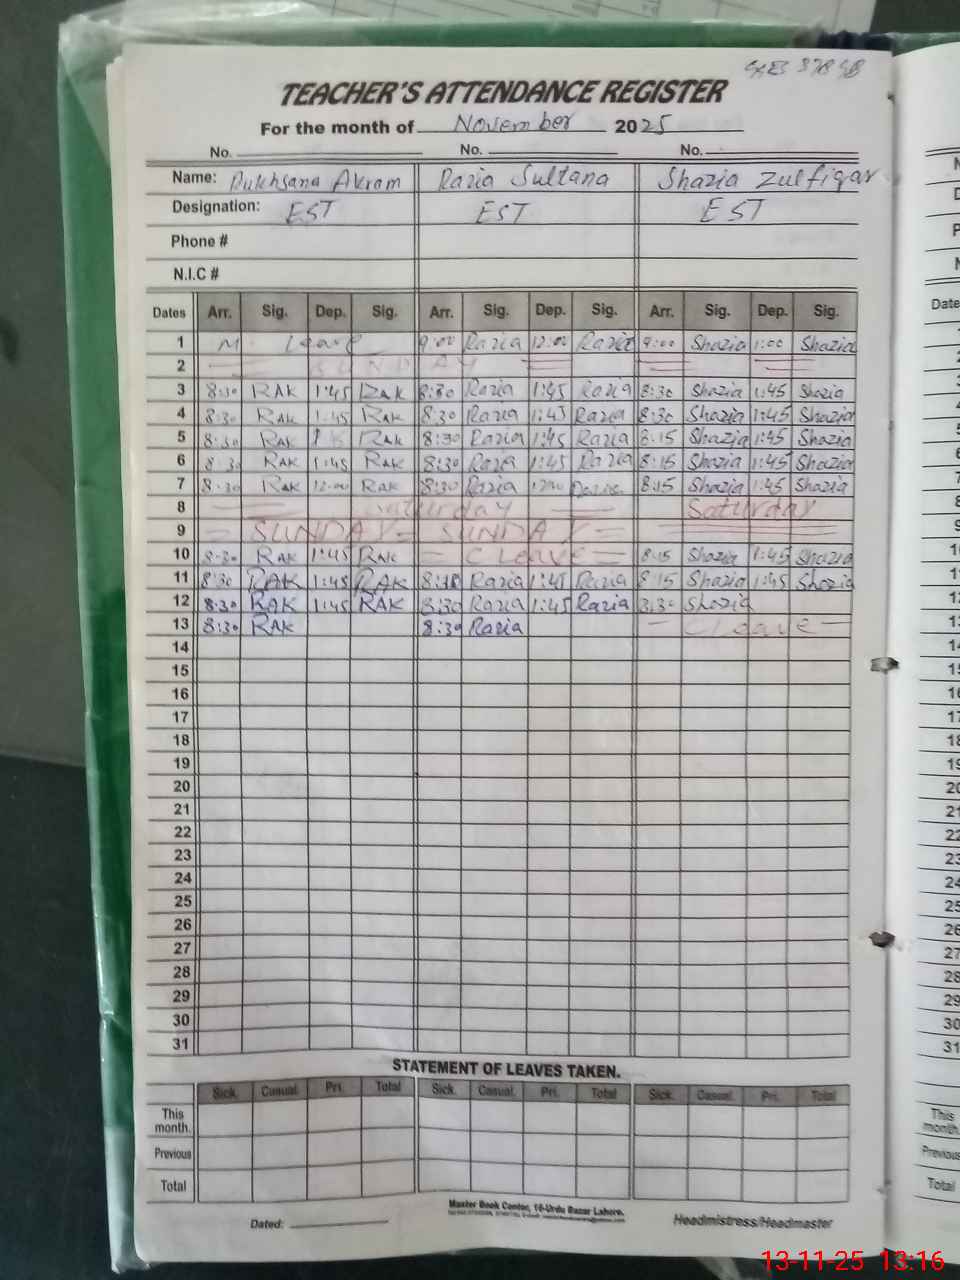 TEACHER'S ATTENDANCE REGISTER
For the month of November 2025
No. No. No.
Name: Rukhsana Akram Razia Sultana Shazia Zulfiqar
Designation: EST EST EST
Phone #
N.I.C #
Dates Arr. Sig. Dep. Sig. Arr. Sig. Dep. Sig. Arr. Sig. Dep. Sig.
1 M. Leave 9:00 Razia 12:00 Razia 9:00 Shazia 1:00 Shazia
2 SUNDAY
3 8:30 RAK 1:45 RAK 8:30 Razia 1:45 Razia 8:30 Shazia 1:45 Shazia
4 8:30 RAK 1:45 RAK 8:30 Razia 1:45 Razia 8:30 Shazia 1:45 Shazia
5 8:30 RAK RAK 8:30 Razia 1:45 Razia 8:15 Shazia 1:45 Shazia
6 8:30 RAK 1:45 RAK 8:30 Razia 1:45 Razia 8:15 Shazia 1:45 Shazia
7 8:30 RAK 12:00 RAK 8:30 Razia 12:00 Razia 8:15 Shazia 1:45 Shazia
8 Saturday Saturday
9 SUNDAY SUNDAY
10 8:30 RAK 1:45 RAK C Leave 8:15 Shazia 1:45 Shazia
11 8:30 RAK 1:45 RAK Razia 1:45 Razia 8:15 Shazia 1:45 Shazia
12 8:30 RAK 1:45 RAK 8:30 Razia 1:45 Razia 8:30 Shazia
13 8:30 RAK 8:30 Razia C Leave
14
15
16
17
18
19
20
21
22
23
24
25
26
27
28
29
30
31
STATEMENT OF LEAVES TAKEN.
Sick. Casual. Pri. Total Sick. Casual. Pri. Total Sick. Casual. Pri. Total
This month.
Previous
Total
Master Book Center, 16-Urdu Bazar Lahore.
Dated: Headmistress/Headmaster
13-11-25 13:16